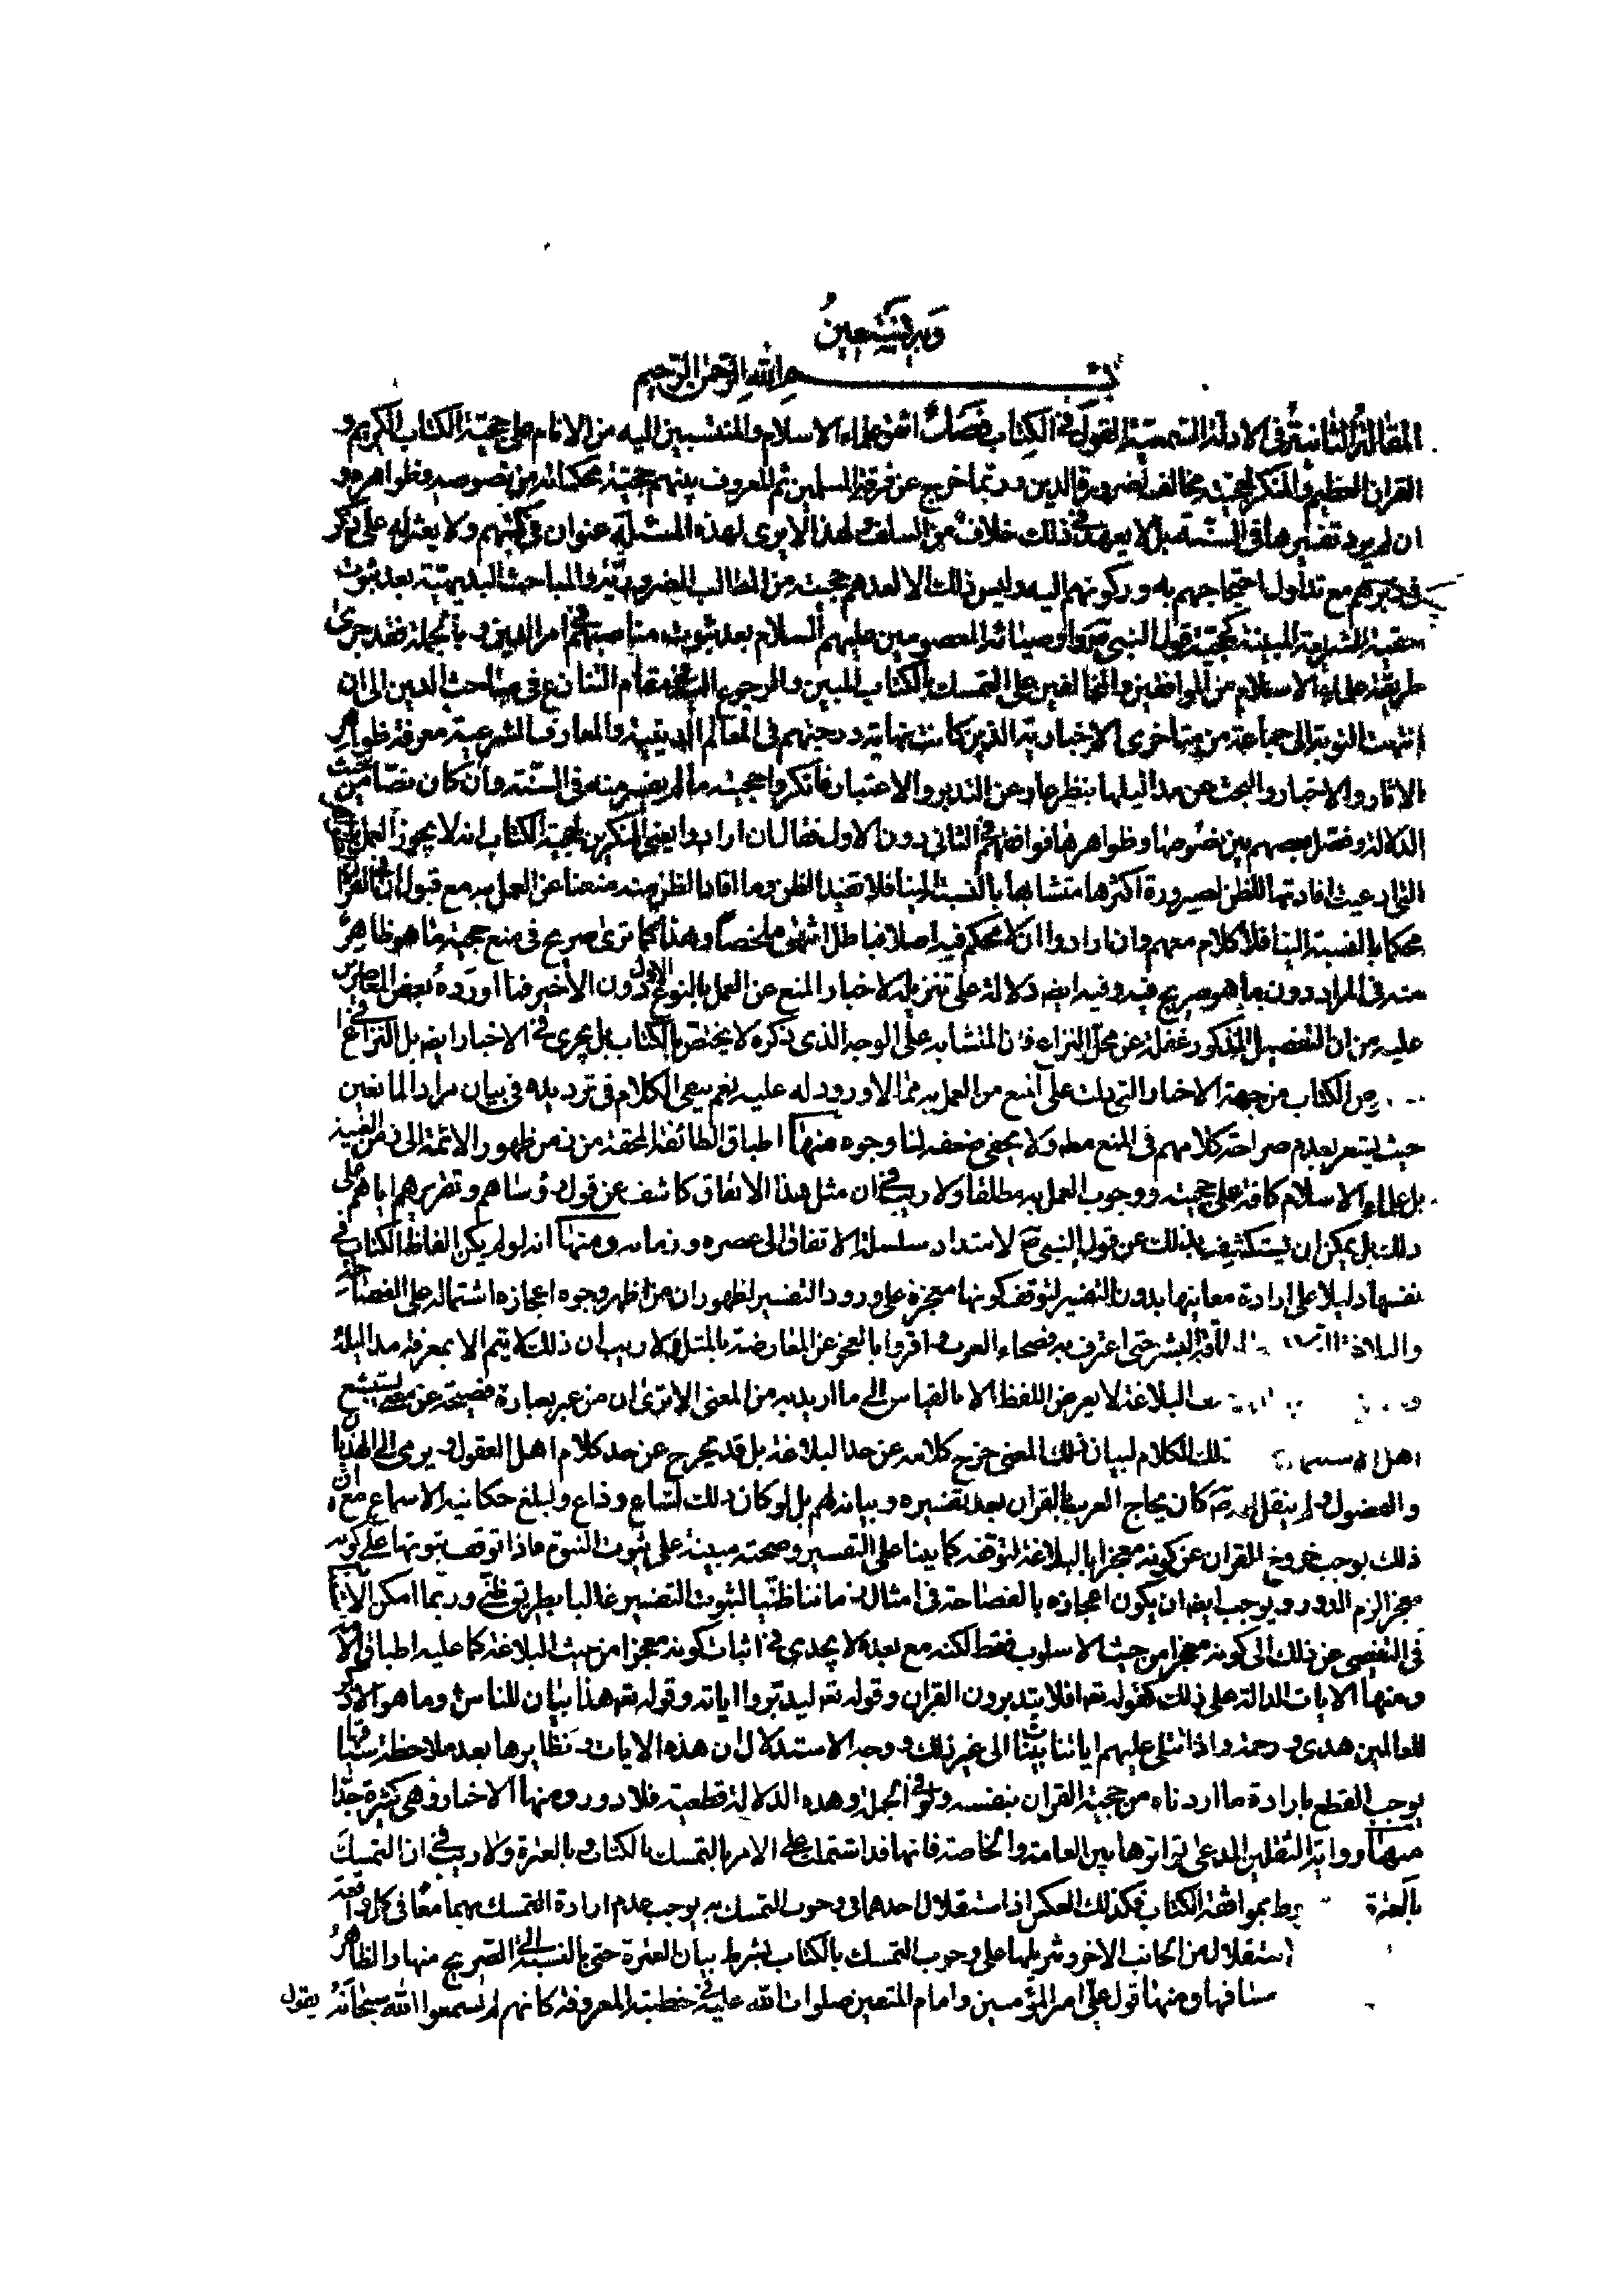 وبه نستعين
بسم الله الرحمن الرحيم
المقالة الثانية في الادلة السمعية القول في الكتاب فصل اتفق علماء الاسلام والمنتسبين اليه من الانام على حجية الكتاب الكريم و
القران العظيم والمنكر لحجيته مخالف لضرورة الدين وربما خرج عن فرقة المسلمين ثم المعروف بينهم حجية محكماته من نصوصه وظواهره و
ان لم يرد تفسيرها في السنة بل لا يعهد في ذلك خلاف من السلف ولهذا لا يرى لهذه المسئلة عنوان في كتبهم ولا يعثر له على ذكر
في زبرهم مع تداول احتجاجهم به وركونهم اليه وليس ذلك الا لعدهم حجيته من المطالب الضرورية والمباحث البديهية بعد ثبوت
حقية الشريعة المبينة كحجية قول النبي ص واوصيائه المعصومين عليهم السلام بعد ثبوت مناصبهم في امر الدين وبالجملة فقد جرى
طريقة علماء الاسلام من الموافقين والمخالفين على التمسك بالكتاب المبين والرجوع اليه في مقام التنازع في مباحث الدين الى ان
انتهت النوبة الى جماعة من متاخرى الاخبارية الذين كانت نهاية درجتهم في المعالم الدينية والمعارف الشرعية معرفة ظواهر
الاثار والاخبار والبحث عن مداليلها بنظر عار عن التدبر والاعتبار فانكروا حجية ما لم يفسر منه في السنة وان كان نصا من حيث
الدلالة وفصل بعضهم بين نصوصها وظواهرها فوافقهم في الثاني دون الاول فقال ان ارادوا يعني المنكرين لحجية الكتاب انه لا يجوز العمل
محكما بالنسبة الينا فلا كلام معهم وان ارادوا ان لا محكم فيه اصلا فباطل انتهى ملخصا وهذا كما ترى صريح في منع حجية ما هو ظاهر
منه في المراد دون ما هو صريح فيه وفيه ايض دلالة على تنزيله لاخبار المنع عن العمل بالنوع الاول دون الاخير فما اورده بعض المعاصرين
عليه من ان التفصيل المذكور غفلة عن محل النزاع فان المتشابه على الوجه الذى ذكره لا يختص بالكتاب بل يجرى في الاخبار ايض بل النزاع في
الكتاب من جهة الاخبار التي دلت على المنع من العمل به مما لا ورود له عليه نعم يبقى الكلام في ترديده في بيان مراد المانعين
حيث يشعر بعدم صراحة كلامهم في المنع مط ولا يخفى ضعفه لنا وجوه منها اطباق الطائفة المحقة من زمن ظهور الائمة الى زمن الغيبة
بل علماء الاسلام كافة على حجيته ووجوب العمل به مطلقا ولا ريب في ان مثل هذا الاتفاق كاشف عن قول رؤسائهم وتقريرهم اياهم على
ذلك بل يمكن ان يستكشف بذلك عن قول النبي ص لامتداد سلسلة الاتفاق الى عصره وزمانه ومنها انه لو لم يكن الفاظ الكتاب في
نفسها دليلا على ارادة معانيها بدون التفسير لتوقف كونها معجزة على ورود التفسير لظهور ان من اظهر وجوه اعجازه اشتماله على الفصاحة
والبلاغة البشر حتى اعترف به فصحاء العرب واقروا بالعجز عن المعارضة بالمثل ولا ريب ان ذلك لا يتم الا بمعرفة مداليله
البلاغة لا يعرض اللفظ الا بالقياس الى ما اريد به من المعنى الا ترى ان من عبر بعبارة فصيحة عن معنى يستبشع
اهل تلك الكلام لبيان ذلك المعنى خرج كلامه عن حد البلاغة بل قد يخرج عن حد كلام اهل العقول ويرمى الى الهذيان
والفضول ولم ينقل انه ص كان يحاج العرب بالقران بعد تفسيره وبيانه لهم بل لو كان ذلك لشاع وذاع ولبلغ حكايته الاسماع مع ان
ذلك يوجب خروج القران عن كونه معجزا بالبلاغة لتوقفه كما بينا على التفسير وصحته مبينة على ثبوت النبوة فاذا توقف ثبوتها على كونه
معجزا لزم الدور ويوجب ايض ان يكون اعجازه بالفصاحة في امثال زماننا ظنيا لثبوت التفسير غالبا بطريق ظني وربما امكن
في التفصى عن ذلك الى كونه معجزا من حيث الاسلوب فقط لكنه مع بعده لا يجدى في اثبات كونه معجزا من حيث البلاغة كما عليه اطباق الامة
ومنها الايات الدالة على ذلك كقوله تعه افلا يتدبرون القران وقوله تعه ليدبروا اياته وقوله تعه هذا بيان للناس وما هو الا ذكر
للعالمين هدى ورحمة واذا تتلى عليهم اياتنا بينات الى غير ذلك ووجه الاستدلال ان هذه الايات ونظايرها بعد ملاحظة سياقها
يوجب القطع بارادة ما اردناه من حجية القران بنفسه ولو في الجملة وهذه الدلالة قطعية فلا دور ومنها الاخبار وهى كثيرة جدا
منها رواية الثقلين المدعى تواترها بين العامة والخاصة فانها قد اشتملت على الامر بالتمسك بالكتاب وبالعترة ولا ريب في ان التمسك
بالعترة بموافقة الكتاب فكذلك العكس اذ استقلال احدهما في وجوب التمسك به يوجب عدم ارادة التمسك بهما معا في كل واقعة
استقلاله من الجانب الاخر وشريلها على وجوب التمسك بالكتاب بشرط بيان العترة حتى بالنسبة الى الصريح منها والظاهر
ينافيها ومنها قول على امير المؤمنين وامام المتقين صلوات الله عليه في خطبته المعروفة كانهم لم يسمعوا الله سبحانه يقول